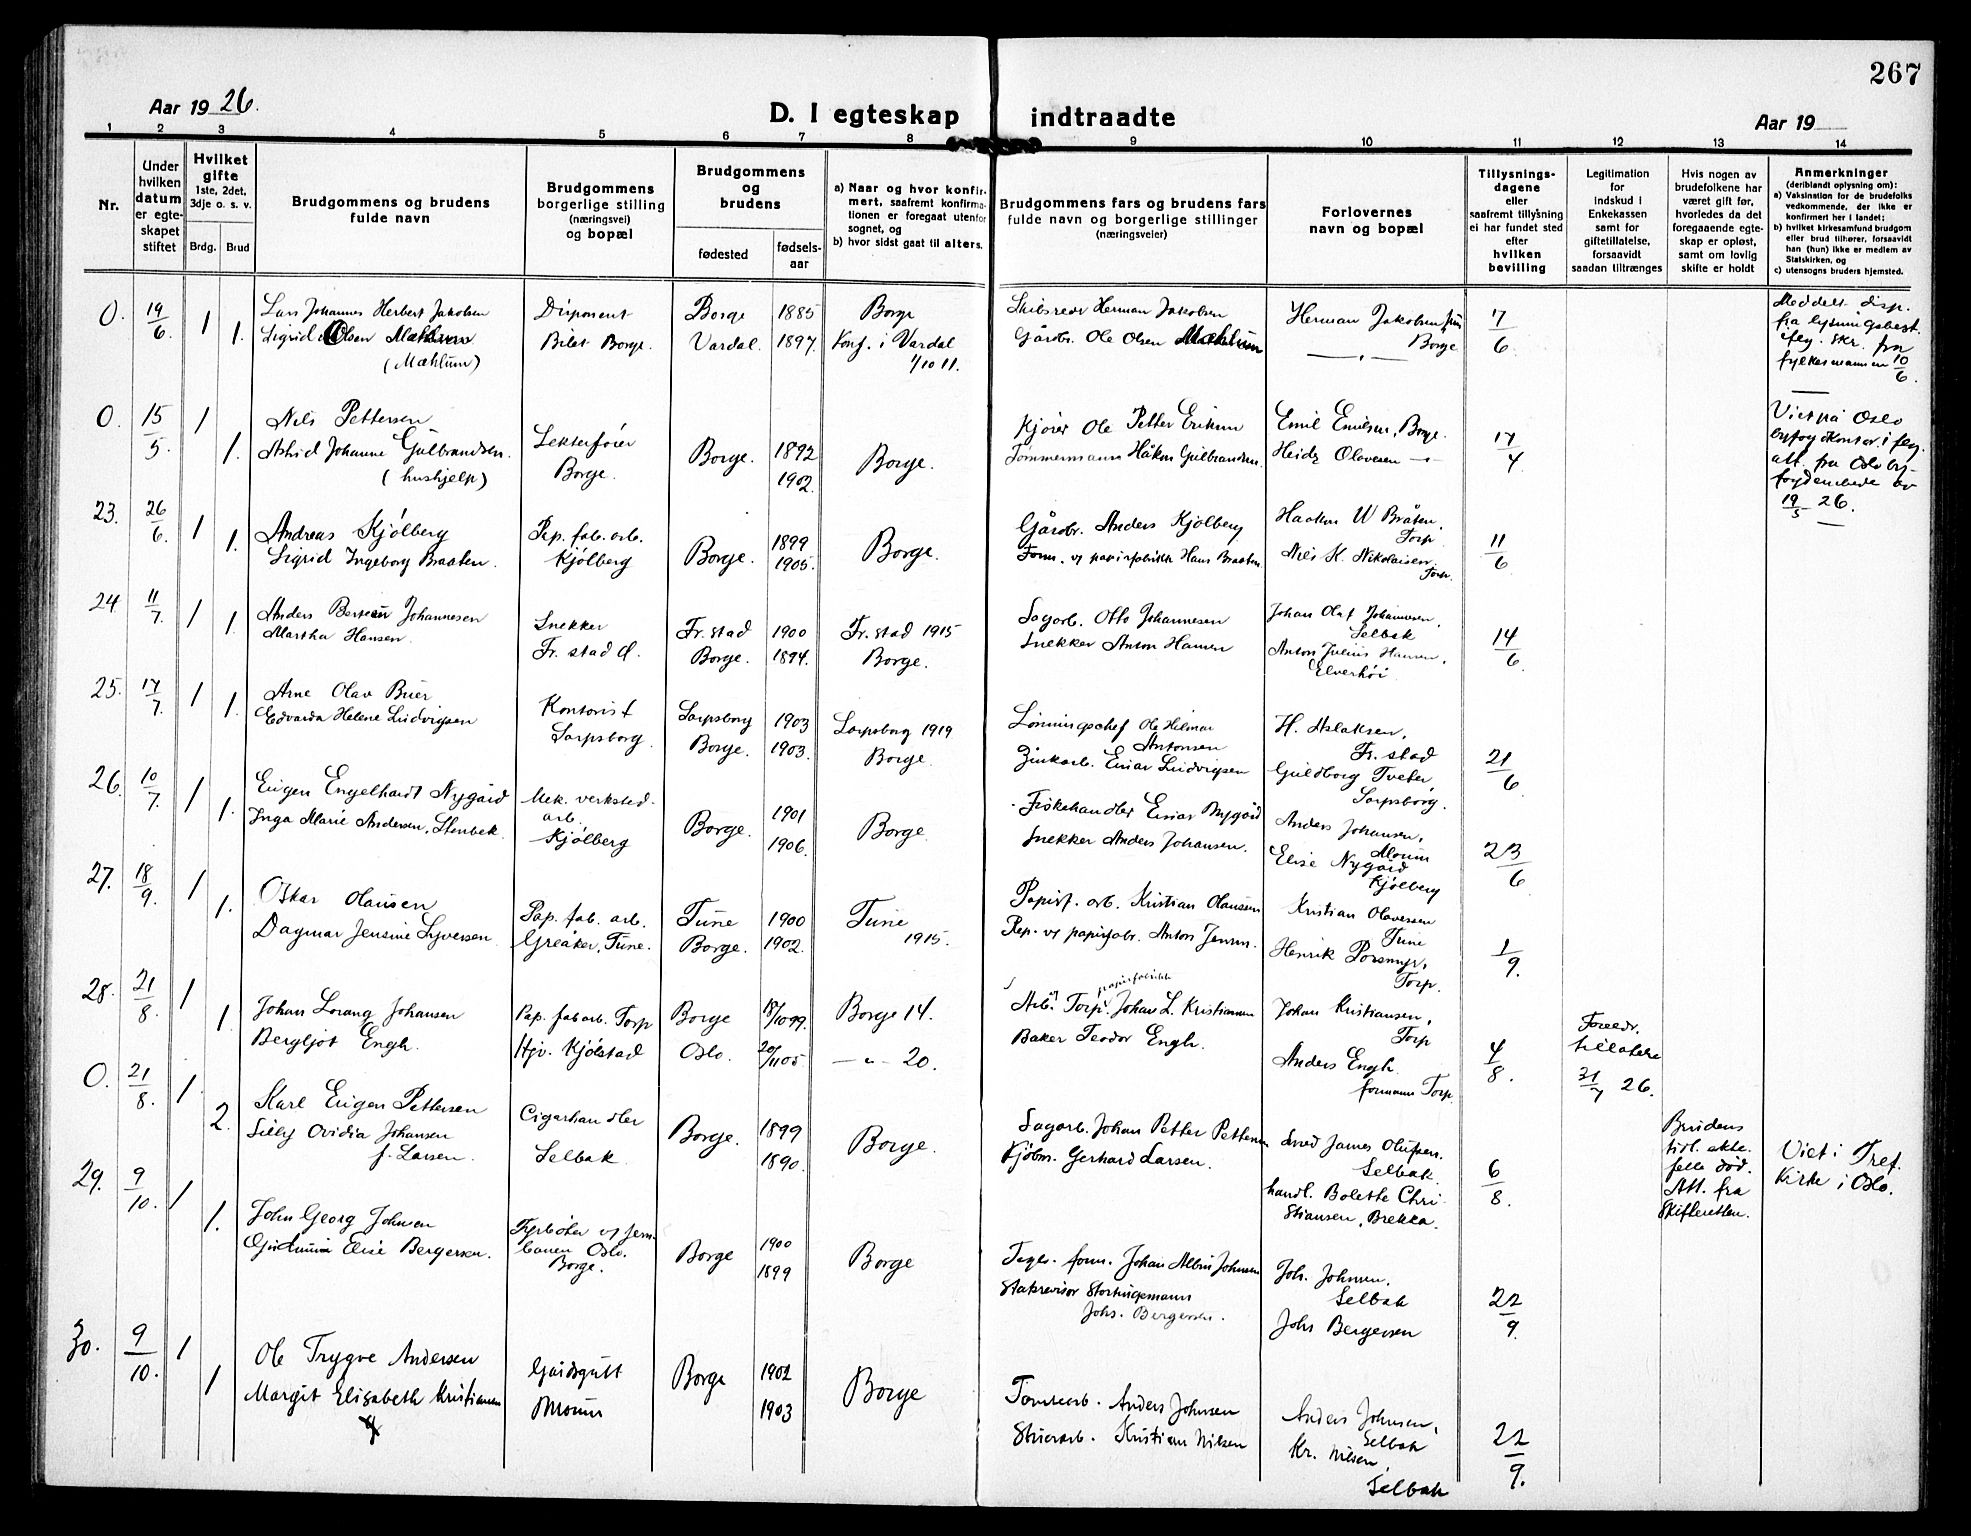 267
Aar 1926.
D. I egteskap indtraadte
Aar 19
1 2 3 4 5 6 7 8 9 10 11 12 13 14
Nr.
Under hvilken datum er egteskapet stiftet
Hvilket gifte 1ste, 2det, 3dje o. s. v.
Brdg. Brud
Brudgommens og brudens fulde navn
Brudgommens borgerlige stilling (næringsvei) og bopæl
Brudgommens og brudens
fødested
fødselsaar
a) Naar og hvor konfirmert, saafremt konfirmationen er foregaat utenfor sognet, og
b) hvor sidst gaat til alters.
Brudgommens fars og brudens fars fulde navn og borgerlige stillinger (næringsveier)
Forlovernes navn og bopæl
Tillysningsdagene eller saafremt tillysning ei har fundet sted efter hvilken bevilling
Legitimation for indskud i Enkekassen samt for giftetillatelse, forsaavidt saadan tiltrænges
Hvis nogen av brudefolkene har været gift før, hvorledes da det foregaaende egteskap er opløst, samt om lovlig skifte er holdt
Anmerkninger (deriblandt oplysning om):
a) Vaksination for de brudefolks vedkommende, der ikke er konfirmert her i landet;
b) hvilket kirkesamfund brudgom eller brud tilhører, forsaavidt han (hun) ikke er medlem av Statskirken, og
c) utensogns bruders hjemsted.
0. 19/6 1 1.
Lars Johannes Herbert Jakobsen
Sigrid Olsen Mæhlum
(Mæhlum)
Disponent
Bilet Borge.
Borge 1885
Vardal. 1897.
Borge
Konf. i Vardal
1/10 11.
Skibsreder Herman Jakobsen
Gårdbr. Ole Olsen Mæhlum
Herman Jakobsen jun
Borge
7/6
Meddelt disp.
fra lysningsbest.
iflg. skr. fra
fylkesmannen 10/6.
0. 15/5 1 1.
Nils Pettersen
Astrid Johanne Gulbrandsen.
(hushjelp)
Lekterfører
Borge.
Borge. 1892
1902.
Borge.
Kjører Ole Petter Eriksen
Tømmermann Håkon Gulbrandsen.
Emil Emilsen, Borge.
Heidz Olavesen -"-
17/4
Viet på Oslo
byfogdkontor, iflg.
att. fra Oslo by-
fogdembede av
19/5 26.
23. 26/6. 1 1.
Andreas Kjølberg
Sigrid Ingeborg Braaten.
Pap. fab. arb.
Kjølberg
Borge. 1899
1905.
Borge.
Gårdbr. Anders Kjølberg
Form. v papirfabrikk Hans Braaten
Haakon W Bråten.
Torp
Nils H. Nikolaisen.
Torp.
11/6
24 11/7. 1 1.
Anders Berteau Johannesen
Martha Hansen.
Snekker
Fr. stad d.
Fr. stad 1900
Borge. 1894.
Fr. stad 1915
Borge.
Sagarb. Otto Johannesen
Snekker Anton Hansen
Johan Olaf Johannesen,
Selbak
Anton Julius Hansen,
Elverhøi
14/6
25. 17/7. 1 1.
Arne Olav Buer
Edvarda Helene Ludvigsen
Kontorist
Sarpsborg.
Sarpsborg 1903
Borge. 1903.
Sarpsborg 1919
Borge.
Lønningschef Ole Hilmar
Antonsen
Zinkarb. Einar Ludvigsen
H. Aslaksen,
Fr. stad
Guldborg Tveter,
Sarpsborg.
21/6
26. 10/7. 1 1.
Eugen Engelhardt Nygård
Inga Marie Andersen, Stenbek.
Mek. verksted.
arb.
Kjølberg
Borge. 1901
1906.
Borge.
Fiskehandler Einar Nygård
Snekker Anders Johansen.
Anders Johansen,
Moum
Elise Nygård
Kjølberg
23/6
27. 18/9. 1 1.
Oskar Olausen
Dagmar Jensine Syversen
Pap. fab. arb.
Greåker, Tune.
Tune 1900
Borge. 1902.
Tune
1915.
Papirf. arb. Kristian Olausen
Rep. v papirfabr. Anton Jensen.
Kristian Olavessen
Tune
Henrik Porsmyr,
Torp.
1/9.
28. 21/8. 1 1.
Johan Lorang Johansen
Bergljot Engh.
Pap. fab arb. Torp
Hjv. Kjølstad
Borge 18/10 99.
Oslo. 20/11 05
Borge 14.
-"- 20.
papirfabrikk
Arb. v Torp Johan L. Kristiansen
Baker Teodor Engh.
Johan Kristiansen,
Torp
Anders Engh.
formann Torp.
4/8.
Foreldr.
tillatelse
31/7 26.
0. 21/8. 1 2.
Karl Eugen Pettersen
Lilly Ovidia Johansen
f. Larsen.
Cigarhandler
Selbak.
Borge. 1899
1890.
Borge.
Sagarb. Johan Petter Pettersen
Kjøbm. Gerhard Larsen.
Arved James Olufsen.
Selbak.
handl. Bolette Chri-
stiansen, Brekka.
6/8.
Brudens
tidl. ekte-
felle død.
Att. fra
skifteretten.
Viet i Tref.
Kirke i Oslo.
29. 9/10. 1 1.
John Georg Johnsen
Gudrunn Elise Bergersen.
Fyrbøter v jern-
banen Oslo.
Borge.
Borge 1900
1899
Borge
Teglv. form. Johan Albin Johnsen
Statsrevisor Stortingsmann
Johs. Bergersen.
Joh. Johnsen.
Selbak
Johs Bergersen
22/9.
30. 9/10. 1 1
Ole Trygve Andersen
Margit Elisabeth Kristiansen
Gårdsgutt
Moum
Borge 1902
1903
Borge
Tomtearb. Anders Johnsen
Stuerarb. Kristian Nilsen
Anders Johnsen,
Selbak
Kr. Nilsen
Selbak
22/9.